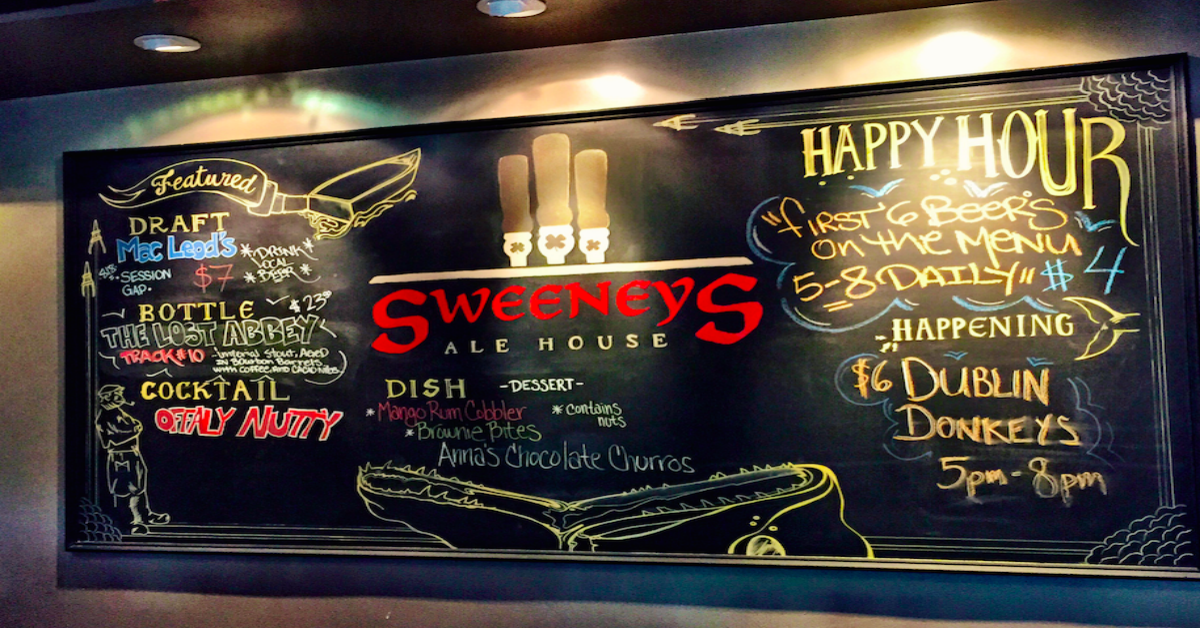 Featured
DRAFT
Mac Leod's
SESSION
GAP
$7
*DRINK
LOCAL
*BEER*
BOTTLE
$23.00
THE LOST ABBEY
TRACK #10
-Imperial Stout, Aged
IN Bourbon Barrels
with coffee and cacao nibs.
COCKTAIL
OFFALY NUTTY
SWEENEYS
ALE HOUSE
DISH -DESSERT-
*Mango Rum Cobbler
*contains
nuts
*Brownie Bites
Anna's Chocolate Churros
HAPPY HOUR
"first 6 Beers
on the Menu
5-8 DAILY" $4
HAPPENING
$6 DUBLIN
DONKEYS
5pm-8pm